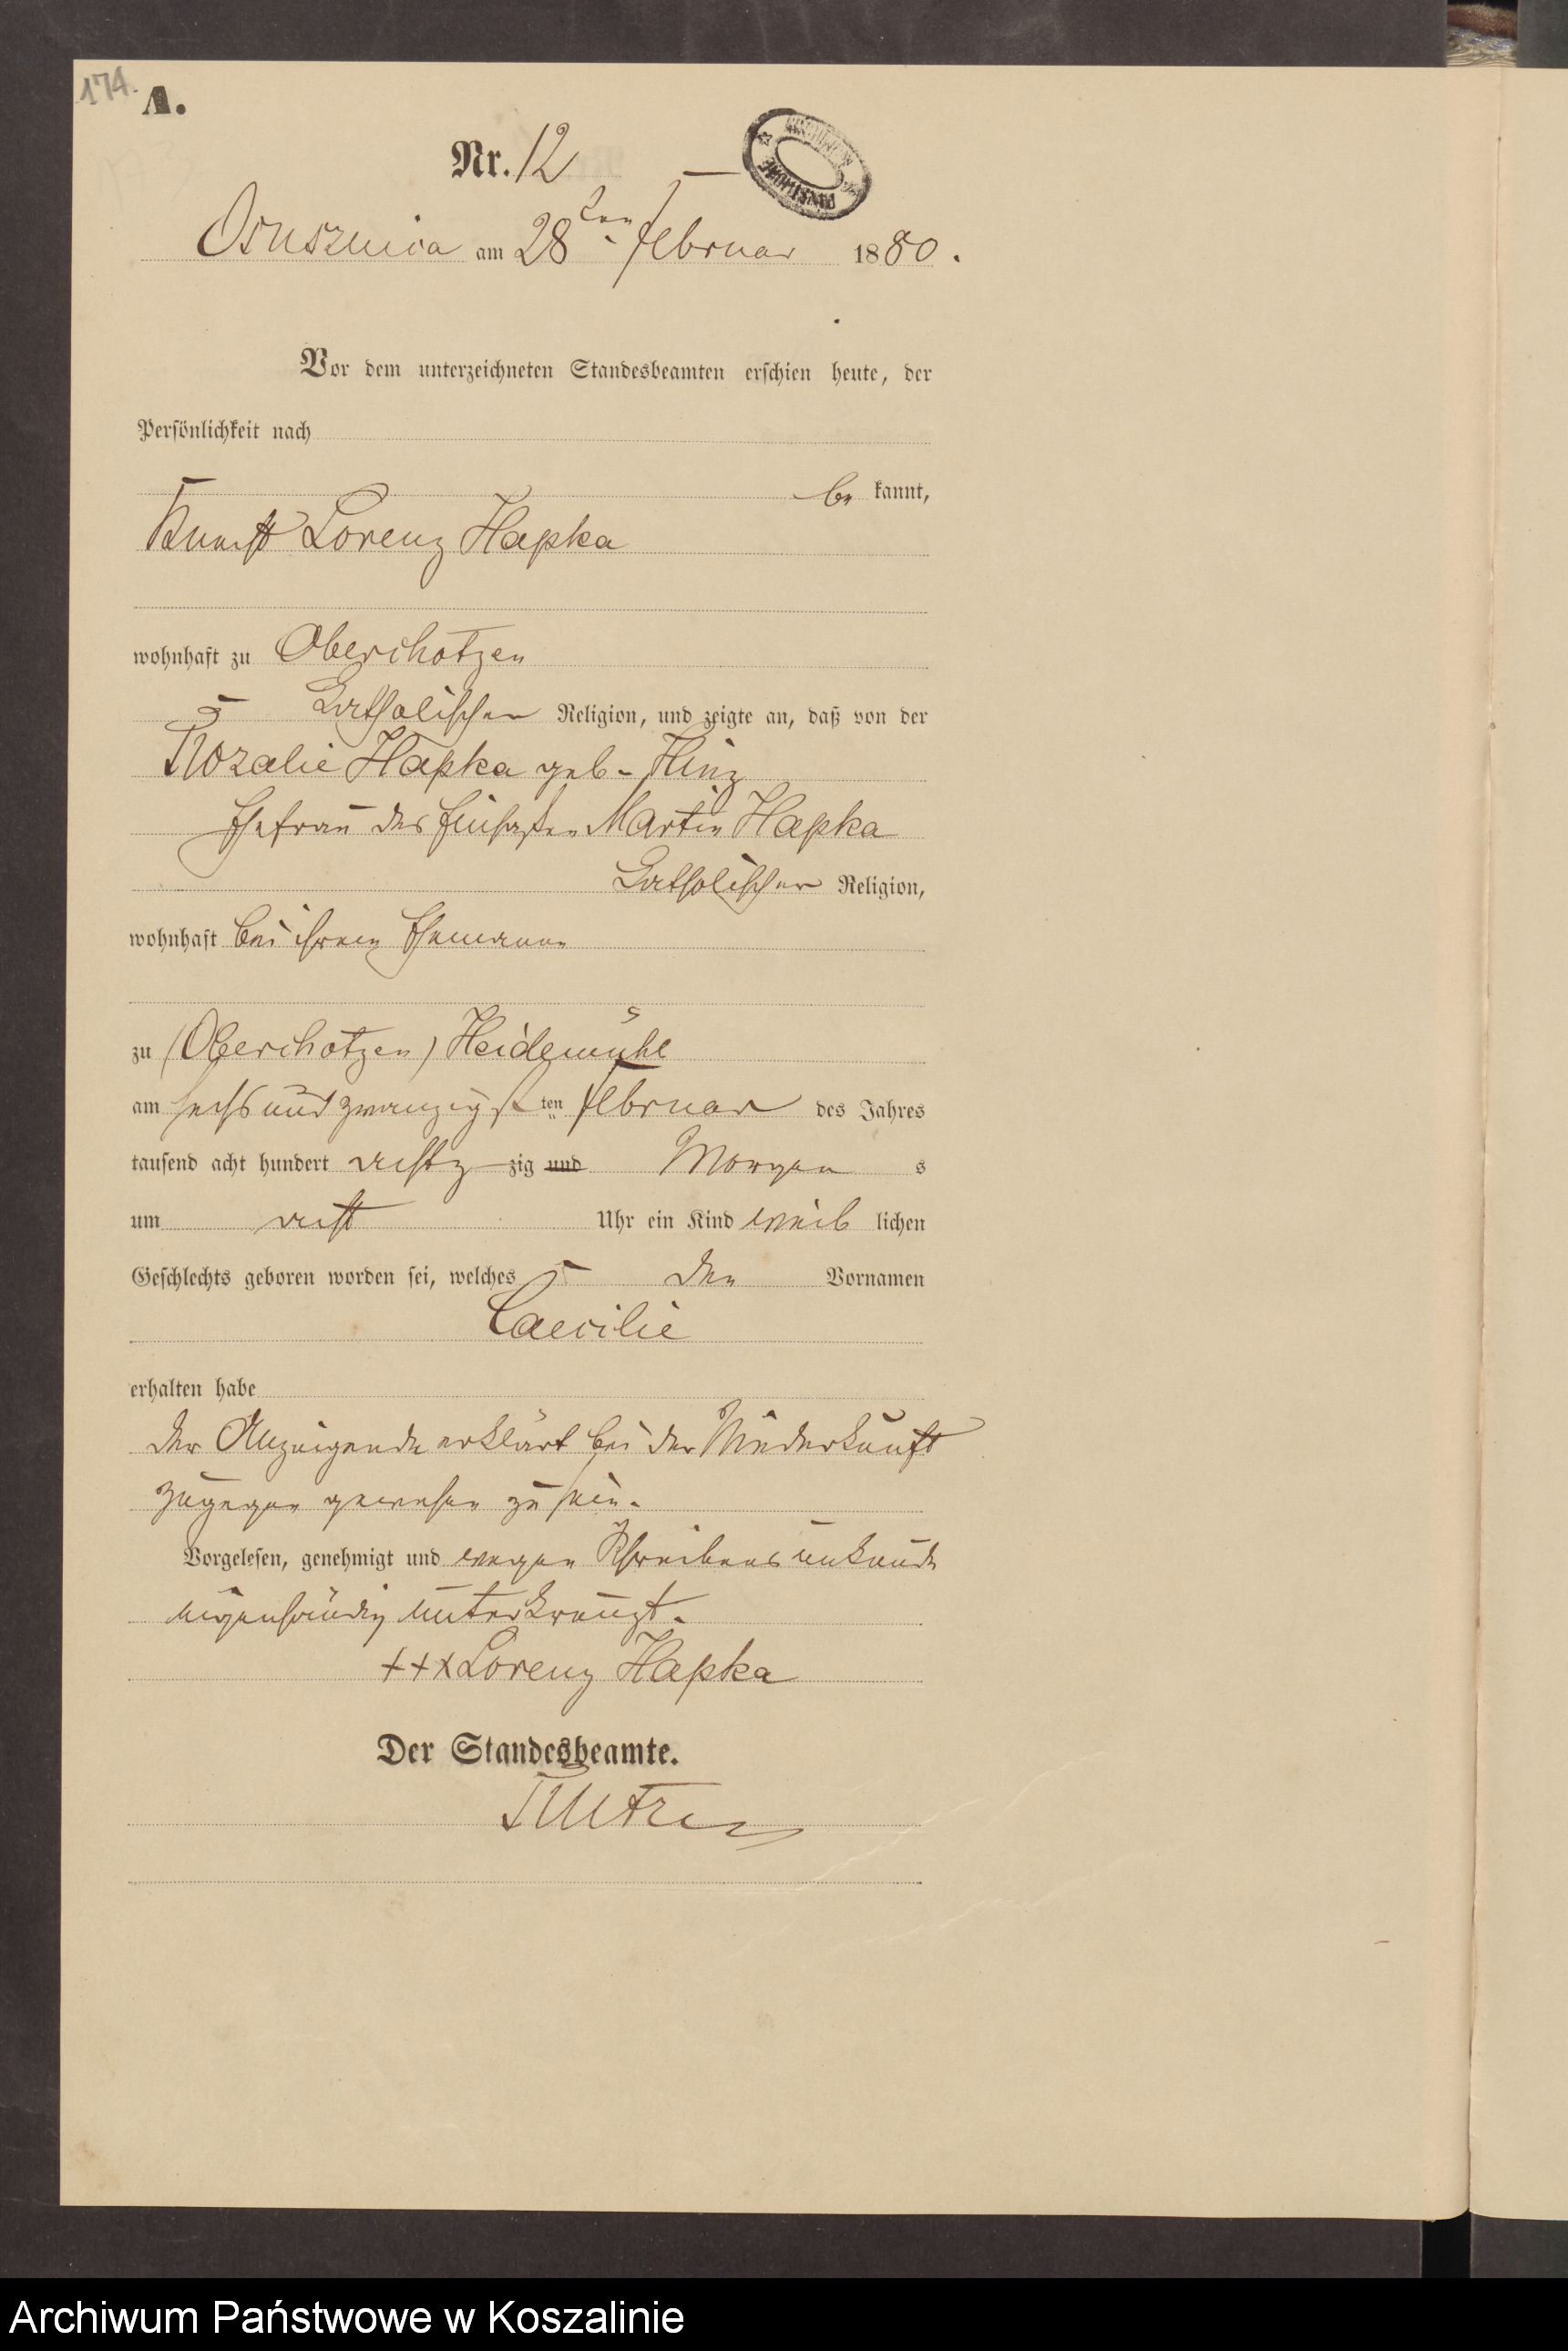 174.
A.
Nr. 12
Osusznica am 28ten Februar 1880.
Vor dem unterzeichneten Standesbeamten erschien heute, der
Persönlichkeit nach
be kannt,
Knecht Lorenz Hapka
wohnhaft zu Oberchotzen
katholischer Religion, und zeigte an, daß von der
Rozalie Hapka geb. Hinz
Ehefrau des Einsaßen Martin Hapka
katholischer Religion,
wohnhaft bei ihrem Ehemann
zu (Oberchotzen) Heidemühl
am sechs und zwanzigsten Februar des Jahres
tausend acht hundert achtz zig und Morgen s
um acht Uhr ein Kind weib lichen
Geschlechts geboren worden sei, welches den Vornamen
Caecilie
erhalten habe
Der Anzeigende erklärt bei der Niederkunft
zugegen gewesen zu sein.
Vorgelesen, genehmigt und wegen Schreibens unkunde
eigenhändig unterkreuzt.
+++ Lorenz Hapka
Der Standesbeamte.
Archiwum Państwowe w Koszalinie